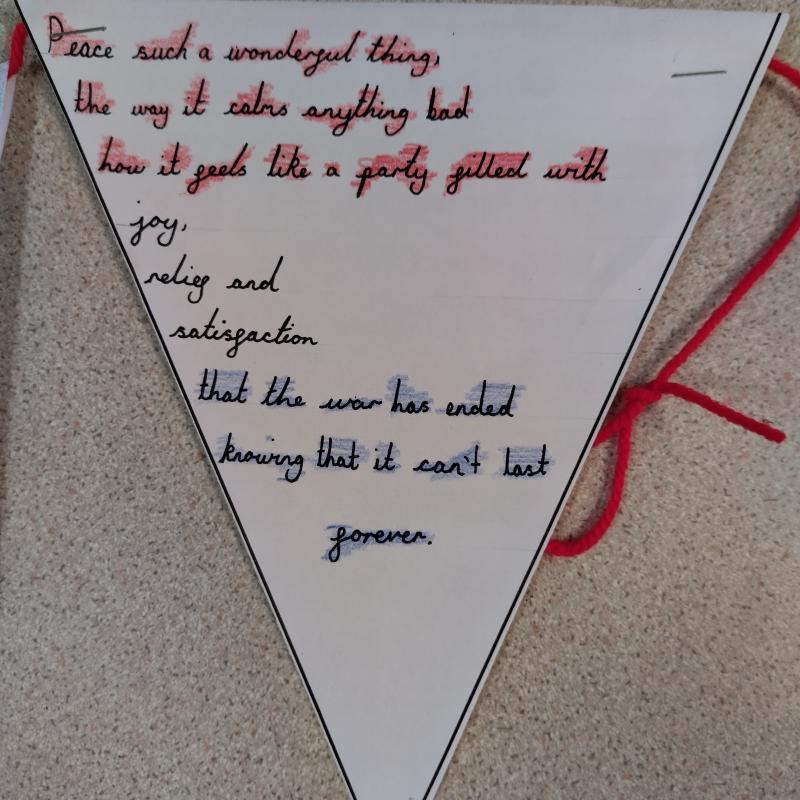 Peace such a wonderful thing,
the way it calms anything bad
how it feels like a party filled with
joy,
relief and
satisfaction
that the war has ended
knowing that it can't last
forever.